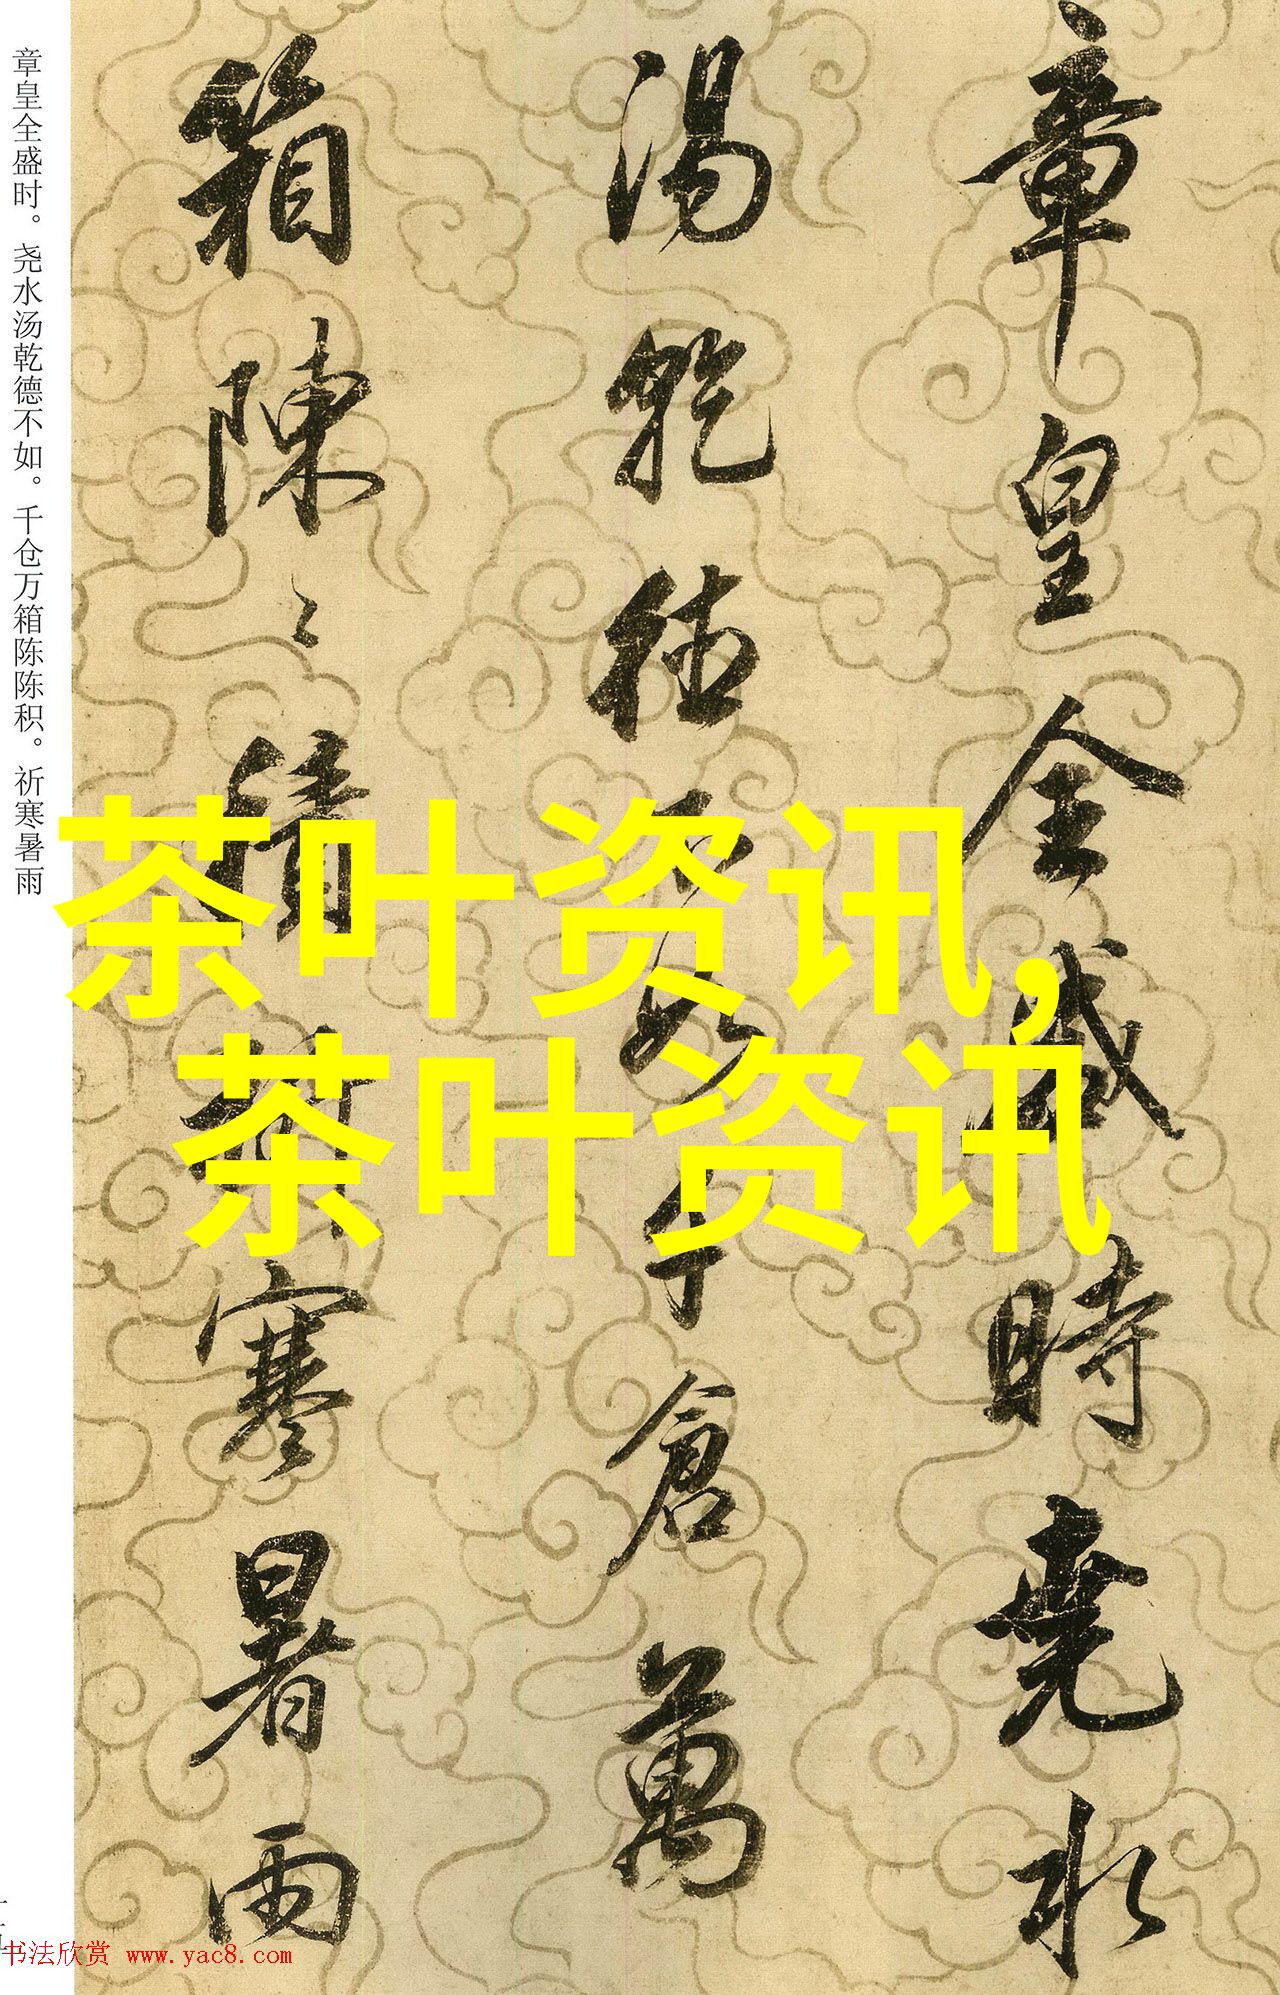 章皇全盛時堯水
湯乾德不如千倉萬
箱陳〻積祈寒暑雨
章皇全盛时。尧水汤乾德不如。千仓万箱陈陈积。祈寒暑雨
茶叶资讯,
茶叶资讯
书法欣赏 www.yac8.com